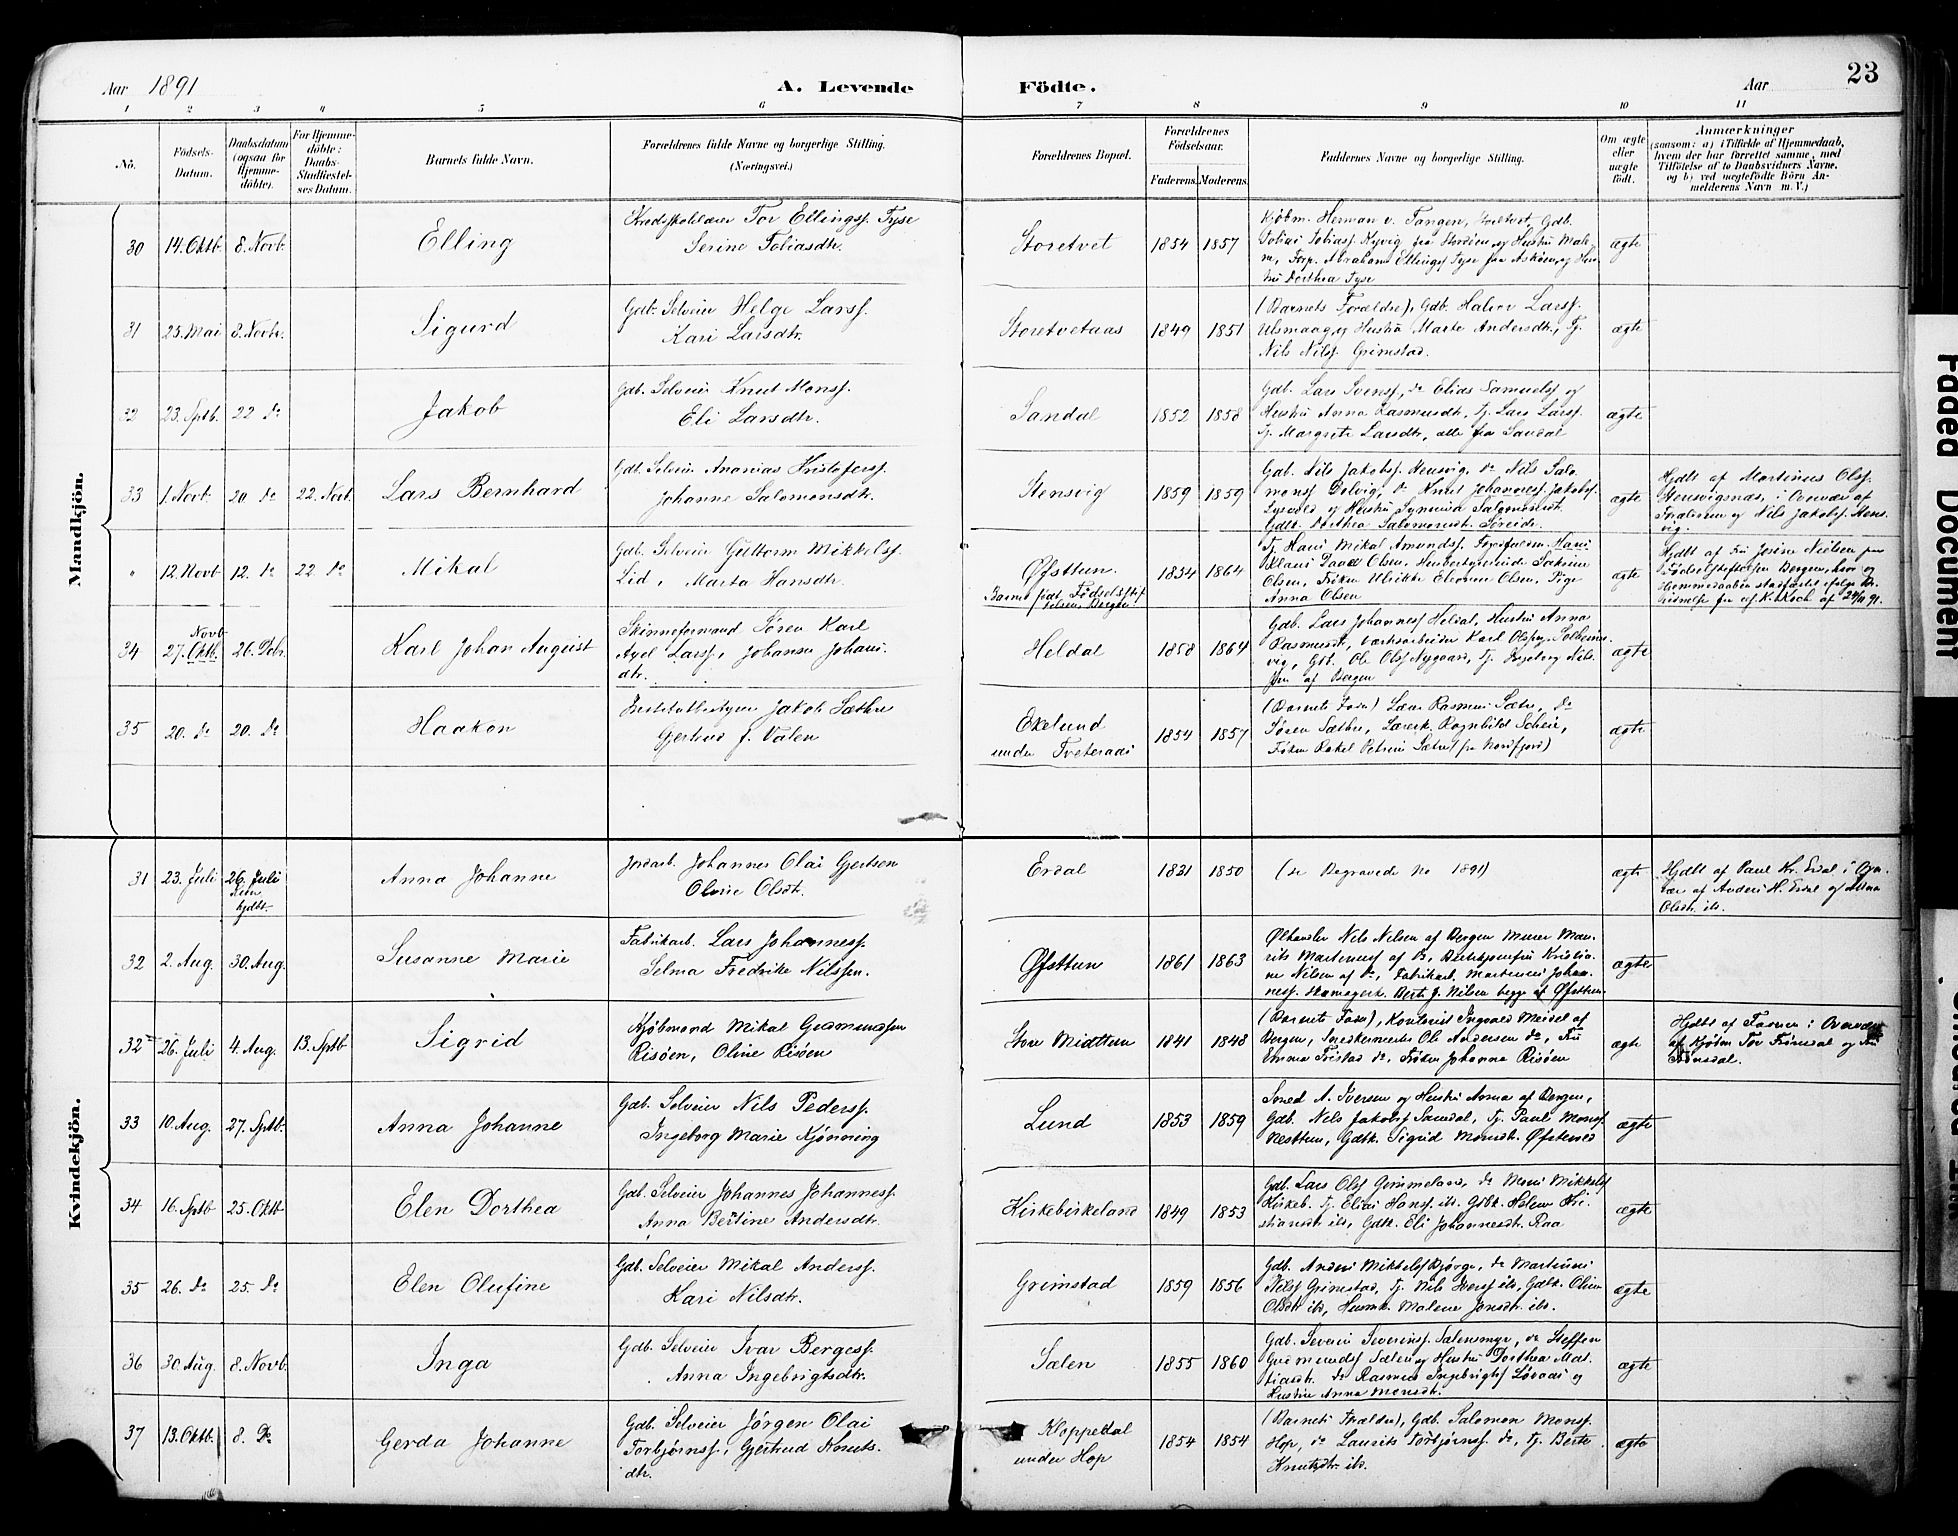 Aar 1891
A. Levende Födte.
Aar
23
1 2 3 4 5 6 7 8 9 10 11
No.
Födsels-Datum.
Daabsdatum (ogsaa for Hjemmedöbte).
For Hjemmedöbte: Daabs-Stadfæstelses Datum.
Barnets fulde Navn.
Forældrenes fulde Navne og borgerlige Stilling. (Næringsvei.)
Forældrenes Bopæl.
Forældrenes Födselsaar.
Faderens. Moderens.
Faddernes Navne og borgerlige Stilling.
Om ægte eller uægte födt.
Anmærkninger
(saasom: a) i Tilfælde af Hjemmedaab, hvem der har forrettet samme, med Tilföielse af to Daabsvidners Navne, og b) ved uægtefödte Börn Anmelderens Navn m. V.)
Mandkjön.
30 14. Oktb. 8. Novb. Elling
Kredsskolelærer Tor Ellingss. Tyse
Serine Tobiasdtr.
Storetvet 1854 1857
Kjøbm. Herman v. Tangen, Storetvet, Gdb.
Tobias Tobiass. Kyvig fra Stordøen og Hustru Male-
ne, Abraham Ellings. Tyse fra Askøen og Hus-
tru Dorthea Tyse
ægte
31 25. Mai 8. Novbr. Sigurd
Gdb. Selveier Helge Larss.
Kari Larsdtr.
Storetvetaas 1849 1851
(Barnets Forældre), Gdb. Halvor Larss.
Ulsmaag og Hustru Marte Andersdtr., Tj.
Nils Nilss. Grimstad.
ægte
32 23. Sptb. 22 do Jakob
Gdb. Selveier Knut Monss.
Eli Larsdtr.
Sandal 1852 1858
Gdb. Lars Svenss., do Elias Samuelss. og
Hustru Anna Rasmusdtr., Tj. Lars Larss.
Tj. Margrete Larsdtr., alle fra Sandal
ægte
33 1. Novb. 20 do 22. Novb. Lars Bernhard
Gdb. Selveier Ananias Kristofers.
Johanne Salomonsdtr.
Stensvig 1859 1859
Gdb. Nils Jakobss. Stensvig, do Nils Salo-
monss. Dolvig, do Knut Johanness. Jakobs.
og Hustru Synneva Salomonsdt.
Gdtr. Dorthea Salomonsdt. Søreide.
ægte
Hjdbt af Martinus Olss.
Stensvignæs, i Overvær af
Forældrene og Nils Jakobss. Stens-
vig.
" 12. Novb 12. do 22 do Mikal
Gdb. Selveier Guttorm Mikkelss.
Lid, Marta Hansdtr.
Øfsttun.
Barnet født Fødselsstif-
telsen Bergen
1854 1864
Tj. Hans Mikal Amundss. Hans
Klaus David Olsen,
Olsen, Frøken Ulrikke Eleonore Olsen, Pige
Anna Olsen
ægte
Hjdbt af Fru Josine Nielsen paa
Fødselsstiftelsen Bergen, hvor og
Hjemmedaaben stadfæstet ifølge
24/11 91.
34 Novb. 27. Oktb. 26. Dcbr. Karl Johan August
Skinneformand Søren Karl
Axel Larss., Johanne Johans-
dtr.
Heldal 1858 1864
Gdb. Lars Johannes Heldal, Hustru Anna
Rasmusdt., Værksarbeider Karl Solheims-
vig, Gdb. Ole Olss. Nygaard, Tj. Ingeborg Nils-
af Bergen
ægte
35 20. do 20. do Haakon
Jakob Sæthre
Gjertrud f. Valen
Ekelund
under Tveteraas
1854 1857
(Barnets Fader) Lærer Rasmus Sætre, do
Søren Sæthre, Lærerk. Ragnhild Scheie,
Frøken Rakel Petrine Sætre (fra Nordfjord)
ægte
Kvindekjön.
31 23. Juli 26. Juli
kun
hjdbt. Anna Johanne
Jordarb. Johannes Olai Gjertsen
Olvine Olsdt.
Erdal 1831 1850
(se Begravede No 1891)
ægte
Hjdbt af Paul Hr. Erdal i Over-
vær af Anders H. Erdal og Anna
Olsdtr. ib.
32 2. Aug. 30. Aug. Susanne Marie
Fabrikarb. Lars Johanness.
Selma Fredrike Nilssen.
Øfsttun 1861 1863
Ølhandler Nils Nilsen af Bergen Murer Mau-
rits Martenuss. af B., Kristia-
ne Nilsen af do, Fabrikarb. Martinus Johan-
ness. Berte J. Nilsen begge af Øfsttun.
ægte
32 26. Juli 4. Aug. 13. Sptb. Sigrid
Kjøbmand Mikal Gudmundsen
Risøen, Oline Risøen
Store Midttun 1841 1848
(Barnets Fader), Kontorist Ingvald Meidel af
Bergen, Snedkermester Ole Andersen do, Fru
Emma Fristad do, Frøken Johanna Risøen
ægte
Hjdbt af Faderen i Overvær
af Kjøbm Tor
33 10. Aug. 27. Sptb. Anna Johanne
Gdb. Selveier Nils Pederss.
Ingeborg Marie Kjønning
Lund 1853 1859
Smed A. Iversen og Hustru Anna af Bergen,
Gdb. Nils Jakobss. Sandal, Tj. Paul Monss.
Nesttun, Gdtk. Sigrid Monsdt. Øfsttun
ægte
34 16. Sptb 25. Oktb Elen Dorthea
Gdb. Selveier Johannes Johanness.
Anna Bertine Andersdtr.
Kirkebirkeland 1849 1853
Gdb. Lars Olss. Grimmeland, do Mons Mikkelss.
Kirkeb. Tj. Elias Hanss. ib. Gdtk. Helene Kri-
stiansdt ib., Gdtk. Eli Johannesdt. Raa
ægte
35 26. do 25. do Elen Olufine
Gdb. Selveier Mikal Anderss.
Kari Nilsdtr.
Grimstad 1859 1856
Gdb. Anders Mikkelss. Bjørge, do Martinus
Nilss. Grimstad, Tj. Nils Iverss. ib., Gdtk. Oline
Olsdt ib., Husmk. Malene Jonsdt. ib.
ægte
36 30. Aug. 8. Novb. Inga
Gdb. Selveier Ivar Bergess.
Anna Ingebrigtsdtr.
Sælen 1855 1860
Gdb. Severin Severinss. Sælensmyr, do Steffen
Gudmundss. Sælen og Hustru Dorthea Mat-
tiasdt. do Rasmus Ingebrigtss. Løvaas og
Hustru Anna Monsdt.
ægte
37 13. Oktb. 8. do Gerda Johanne
Gdb. Selveier Jørgen Olai
Torbjørnss., Gjertrud Knuts-
dtr.
Kloppedal
under Hop
1854 1854
(Barnets Forældre), Gdb. Salomon Monss.
Hop, do Laurits Torbjørnss. do, Tj. Berte
Knutsdtr. ib.
ægte
Faded Document